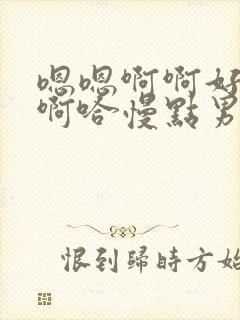 嗯嗯啊啊好
啊哈慢點男
恨到歸時方始